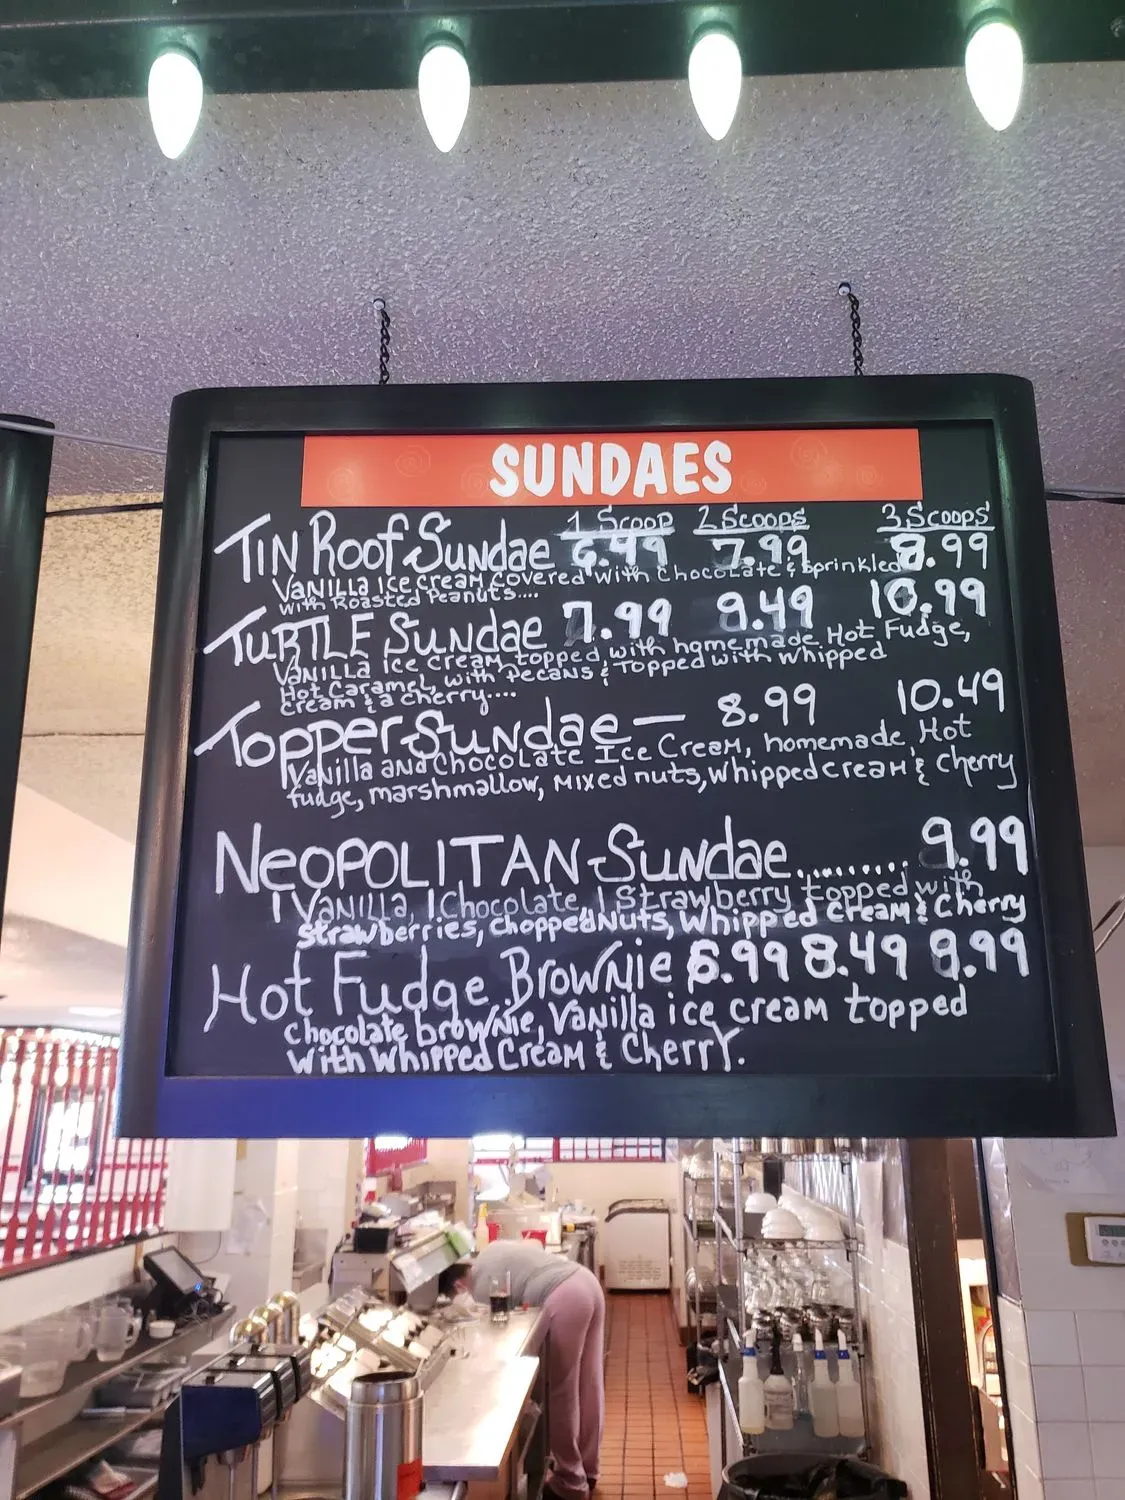 SUNDAES
1 Scoop 2 Scoops 3 Scoops
Tin Roof Sundae 6.49 7.99 8.99
Vanilla ice cream covered with chocolate & sprinkled
with Roasted Peanuts....
Turtle Sundae 7.99 9.49 10.99
Vanilla ice cream topped with homemade Hot Fudge,
Hot Caramel, with pecans & topped with whipped
cream & a cherry....
Topper Sundae — 8.99 10.49
Vanilla and Chocolate Ice Cream, homemade Hot
fudge, marshmallow, mixed nuts, whipped cream & cherry
Neopolitan-Sundae......... 9.99
1 Vanilla, 1 Chocolate, 1 Strawberry topped with
strawberries, chopped Nuts, Whipped cream & Cherry
Hot Fudge Brownie 6.99 8.49 9.99
chocolate brownie, Vanilla ice cream topped
with Whipped Cream & Cherry.